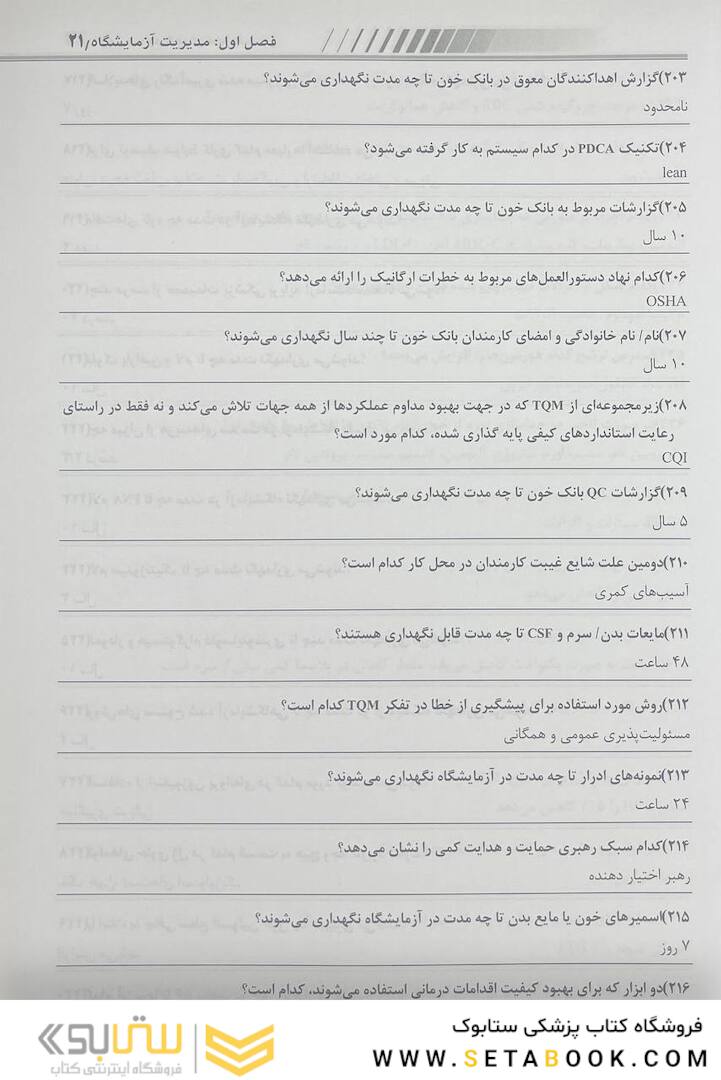 فصل اول: مدیریت آزمایشگاه/ ۲۱
۲۰۳)گزارش اهداکنندگان معوق در بانک خون تا چه مدت نگهداری می‌شوند؟
نامحدود
۲۰۴)تکنیک PDCA در کدام سیستم به کار گرفته می‌شود؟
lean
۲۰۵)گزارشات مربوط به بانک خون تا چه مدت نگهداری می‌شوند؟
۱۰ سال
۲۰۶)کدام نهاد دستورالعمل‌های مربوط به خطرات ارگانیک را ارائه می‌دهد؟
OSHA
۲۰۷)نام/ نام خانوادگی و امضای کارمندان بانک خون تا چند سال نگهداری می‌شوند؟
۱۰ سال
۲۰۸)زیرمجموعه‌ای از TQM که در جهت بهبود مداوم عملکردها از همه جهات تلاش می‌کند و نه فقط در راستای
رعایت استانداردهای کیفی پایه گذاری شده، کدام مورد است؟
CQI
۲۰۹)گزارشات QC بانک خون تا چه مدت نگهداری می‌شوند؟
۵ سال
۲۱۰)دومین علت شایع غیبت کارمندان در محل کار کدام است؟
آسیب‌های کمری
۲۱۱)مایعات بدن/ سرم و CSF تا چه مدت قابل نگهداری هستند؟
۴۸ ساعت
۲۱۲)روش مورد استفاده برای پیشگیری از خطا در تفکر TQM کدام است؟
مسئولیت‌پذیری عمومی و همگانی
۲۱۳)نمونه‌های ادرار تا چه مدت در آزمایشگاه نگهداری می‌شوند؟
۲۴ ساعت
۲۱۴)کدام سبک رهبری حمایت و هدایت کمی را نشان می‌دهد؟
رهبر اختیار دهنده
۲۱۵)اسمیرهای خون یا مایع بدن تا چه مدت در آزمایشگاه نگهداری می‌شوند؟
۷ روز
۲۱۶)دو ابزار که برای بهبود کیفیت اقدامات درمانی استفاده می‌شوند، کدام است؟
فروشگاه کتاب پزشکی ستابوک
WWW.SETABOOK.COM
ستابوک
فروشگاه اینترنتی کتاب